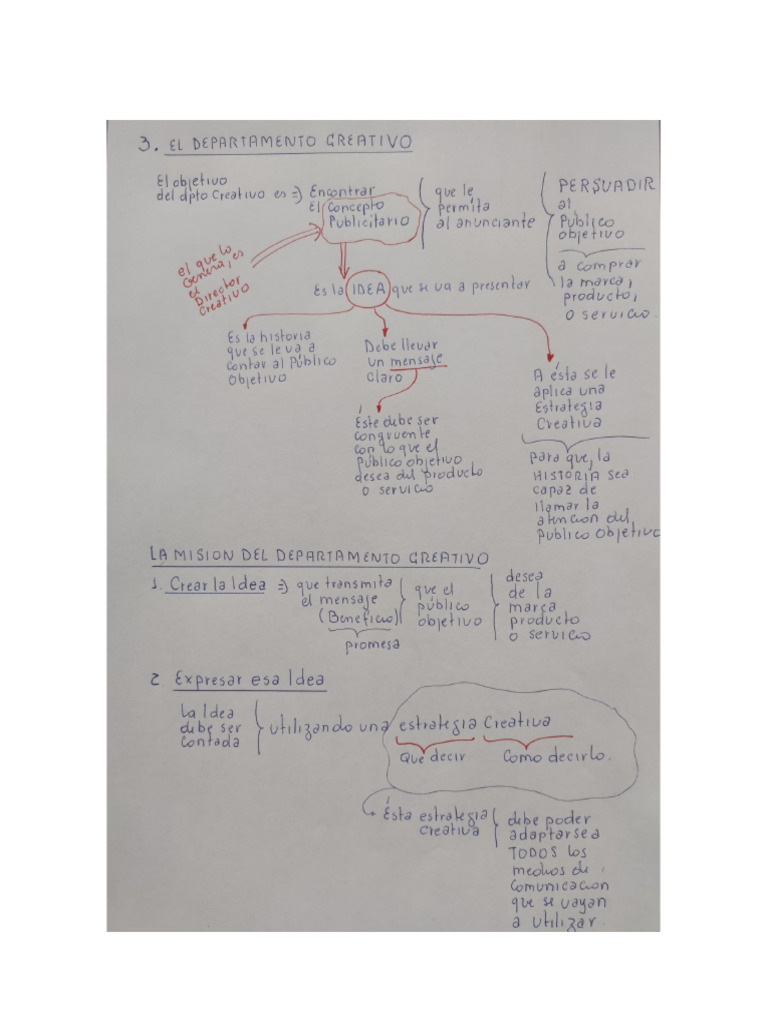 3. EL DEPARTAMENTO CREATIVO
El objetivo
del dpto Creativo es => Encontrar
El Concepto
Publicitario
que le
permita
al anunciante
PERSUADIR
al
Publico
objetivo
a comprar
la marca,
producto,
o servicio.
el que lo
Genera, es
el
Director
Creativo
Es la IDEA que se va a presentar
Es la historia
que se le va a
contar al Público
Objetivo
Debe llevar
un mensaje
claro
Éste debe ser
congruente
con lo que el
Público objetivo
desea del producto
o servicio
A ésta se le
aplica una
Estrategia
Creativa
para que, la
HISTORIA sea
capaz de
llamar la
atencion del
Publico Objetivo
LA MISION DEL DEPARTAMENTO CREATIVO
1. Crear la Idea => que transmita
el mensaje
(Beneficio)
promesa
que el
público
objetivo
desea
de la
marca
producto
o servicio
2 Expresar esa Idea
La Idea
debe ser
contada
utilizando una estrategia Creativa
Que decir
Como decirlo.
Ésta estrategia
creativa
debe poder
adaptarse a
TODOS los
medios de
Comunicacion
que se vayan
a utilizar.